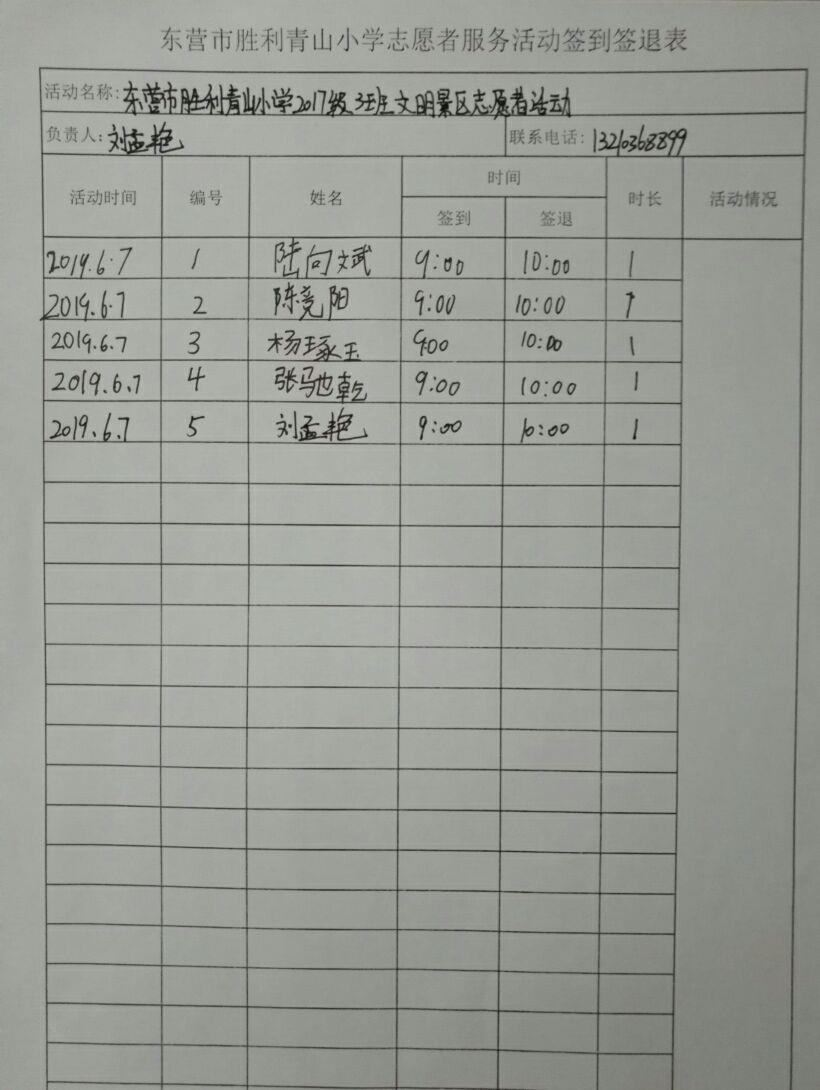 东营市胜利青山小学志愿者服务活动签到签退表
活动名称:东营市胜利青山小学2017级3班文明景区志愿者活动
负责人:刘孟艳 联系电话:13210368899
活动时间 编号 姓名 时间 时长 活动情况
签到 签退
2019.6.7 1 陆向斌 9:00 10:00 1
2019.6.7 2 陈竞阳 9:00 10:00 1
2019.6.7 3 杨琢玉 9:00 10:00 1
2019.6.7 4 张驰乾 9:00 10:00 1
2019.6.7 5 刘孟艳 9:00 10:00 1